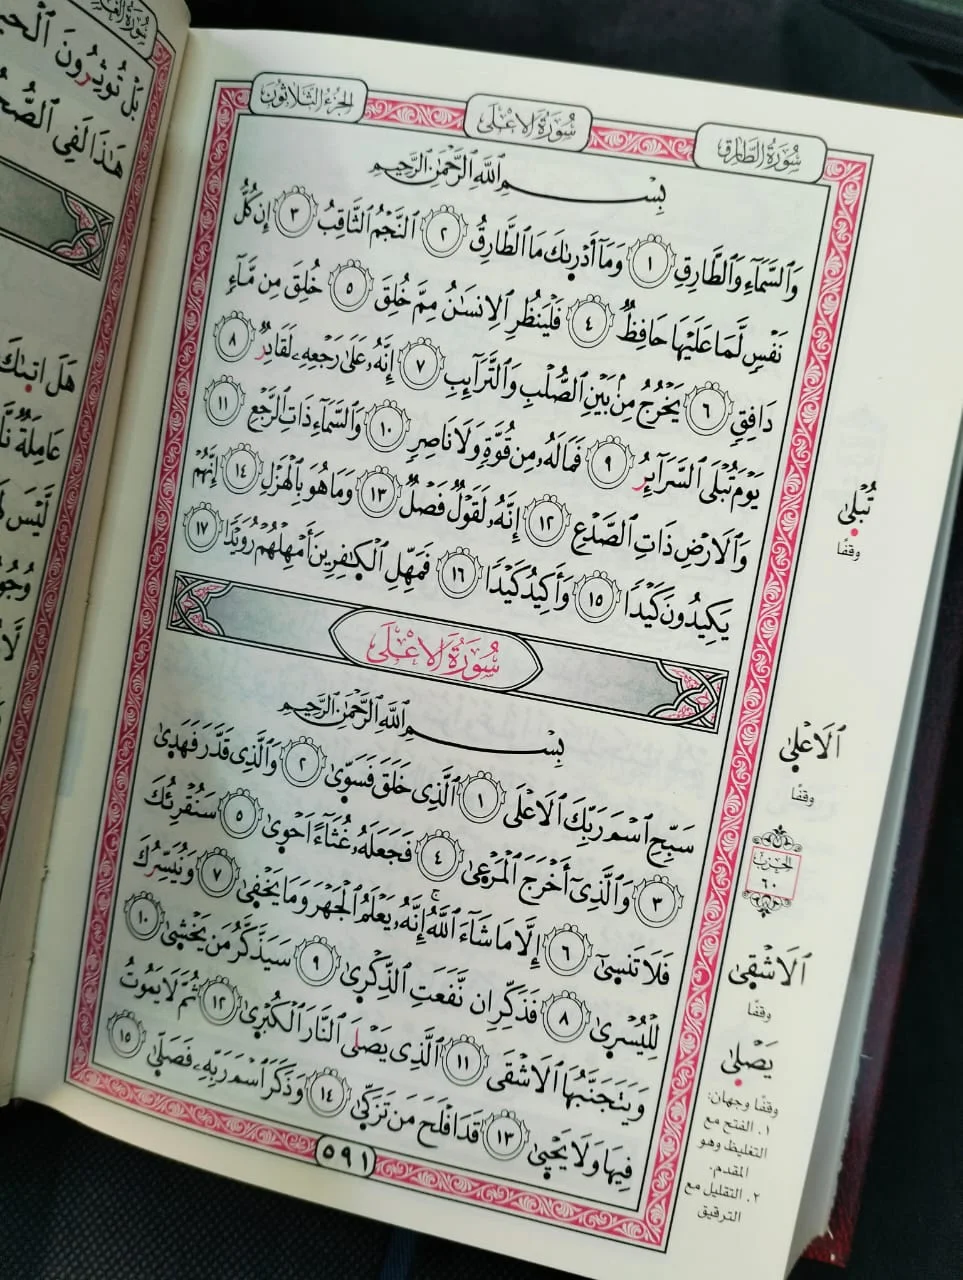 سُورَةُ الطَّارِقِ
سُورَةُ اَلَاعْلَى
الجُزءُ الثَلَاثُونَ
بِسْمِ اِللَّهِ اِلرَّحْمَٰنِ اِلرَّحِيمِ
وَالسَّمَآءِ وَالطَّارِقِ ١ وَمَآ أَدْرِىٰكَ مَا اَلطَّارِقُ ٢ اَلنَّجْمُ الثَّاقِبُ ٣ إِن كُلُّ
نَفْسٍ لَّمَا عَلَيْهَا حَافِظٌ ٤ فَلْيَنظُرِ اِلِانسَٰنُ مِمَّ خُلِقَ ٥ خُلِقَ مِن مَّآءٍ
دَافِقٍ ٦ يَخْرُجُ مِنۢ بَيْنِ اِلصُّلْبِ وَالتَّرَآئِبِ ٧ إِنَّهُۥ عَلَىٰ رَجْعِهِۦ لَقَادِرٌ ٨
يَوْمَ تُبْلَى اَلسَّرَآئِرُ ٩ فَمَا لَهُۥ مِن قُوَّةٍ وَلَا نَاصِرٍ ١٠ وَالسَّمَآءِ ذَاتِ اِلرَّجْعِ ١١
وَالَارْضِ ذَاتِ اِلصَّدْعِ ١٢ إِنَّهُۥ لَقَوْلٌ فَصْلٌ ١٣ وَمَا هُوَ بِالْهَزْلِ ١٤ إِنَّهُمْ
يَكِيدُونَ كَيْدًا ١٥ وَأَكِيدُ كَيْدًا ١٦ فَمَهِّلِ اِلْكٰفِرِينَ أَمْهِلْهُمْ رُوَيْدًا ١٧
سُورَةُ اَلَاعْلَى
بِسْمِ اِللَّهِ اِلرَّحْمَٰنِ اِلرَّحِيمِ
سَبِّحِ اِسْمَ رَبِّكَ اَلَاعْلَى ١ اَلَّذِى خَلَقَ فَسَوّىٰ ٢ وَالَّذِى قَدَّرَ فَهَدىٰ
٣ وَالَّذِىٓ أَخْرَجَ اَلْمَرْعىٰ ٤ فَجَعَلَهُۥ غُثَآءً اَحْوىٰ ٥ سَنُقْرِئُكَ
فَلَا تَنسىٰٓ ٦ إِلَّا مَا شَآءَ اَللَّهُ إِنَّهُۥ يَعْلَمُ اُلْجَهْرَ وَمَا يَخْفىٰ ٧ وَنُيَسِّرُكَ
لِلْيُسْرىٰ ٨ فَذَكِّرِ اِن نَّفَعَتِ اِلذِّكْرىٰ ٩ سَيَذَّكَّرُ مَن يَخْشىٰ ١٠
وَيَتَجَنَّبُهَا اَلَاشْقَى ١١ اَلَّذِى يَصْلَى اَلنَّارَ اَلْكُبْرىٰ ١٢ ثُمَّ لَا يَمُوتُ
فِيهَا وَلَا يَحْيىٰ ١٣ قَدَ اَفْلَحَ مَن تَزَكّىٰ ١٤ وَذَكَرَ اَسْمَ رَبِّهِۦ فَصَلّىٰ ١٥
٥٩١
تُبْلىٰ
وقفًا
اَلَاعْلىٰ
وقفًا
الحزب
٦٠
اَلَاشْقىٰ
وقفًا
يَصْلىٰ
وقفًا وجهان:
١. الفتح مع
التغليظ وهو
المقدم.
٢. التقليل مع
الترقيق
بَلْ تُوثِرُونَ
هَٰذَا لَفِى
هَلَ اَتىٰكَ
عَامِلَةٌ
لَيْسَ